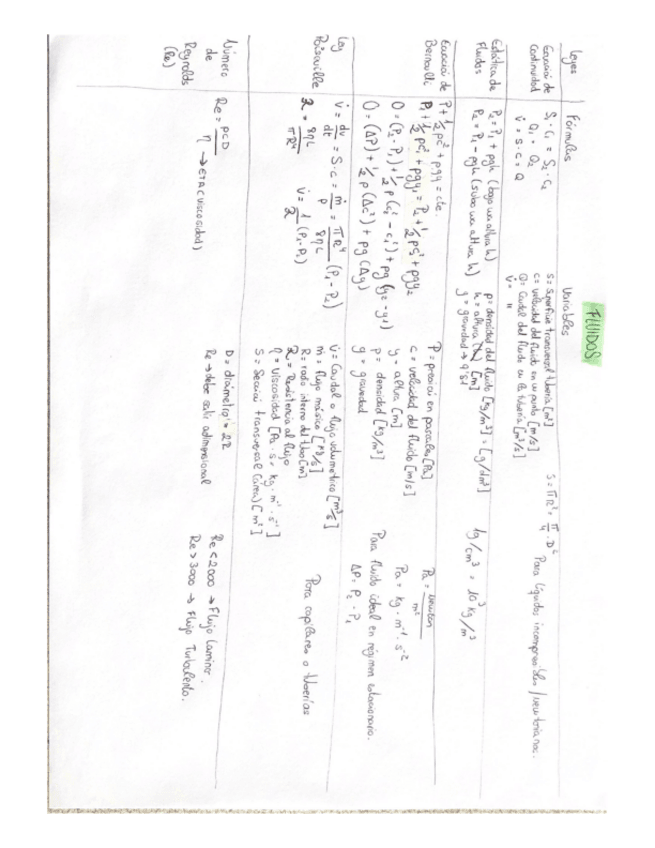 FLUIDOS
Leyes Fórmulas Variables
Ecuación de Continuidad
S₁ · C₁ = S₂ · C₂
Q₁ = Q₂
V̇ = S · C = Q
S = Superficie transversal tubería [m²]
C = velocidad del fluido en un punto [m/s]
Q = Caudal del fluido en la tubería [m³/s]
V̇ = "
S = πR² = π/4 · D²
Para líquidos incompresibles / newtonianos.
Estática de Fluidos
P₂ = P₁ + ρgh (bajo una altura h)
P₂ = P₁ - ρgh (subo una altura h)
ρ = densidad del fluido [kg/m³] = [g/dm³]
h = altura [m]
g = gravedad → 9'81
1g/cm³ = 10³ kg/m³
Ecuación de Bernoulli
P + ½ρc² + ρgy = cte.
P₁ + ½ρc₁² + ρgy₁ = P₂ + ½ρc₂² + ρgy₂
0 = (P₂ - P₁) + ½ρ(c₂² - c₁²) + ρg(y₂ - y₁)
0 = (ΔP) + ½ρ(Δc²) + ρg(Δy)
P = presión en pascales [Pa]
c = velocidad del fluido [m/s]
y = altura [m]
ρ = densidad [kg/m³]
g = gravedad
Pa = newton/m²
Pa = kg · m⁻¹ · s⁻²
Para fluido ideal en régimen estacionario.
ΔP = P₂ - P₁
Ley Poiseuille
V̇ = dv/dt = S · c = ṁ/ρ = πR⁴/8ηL (P₁ - P₂)
R = 8ηL/πR⁴ V̇ = 1/R (P₁ - P₂)
V̇ = Caudal o flujo volumétrico [m³/s]
ṁ = flujo másico [kg/s]
R = radio interno del tubo [m]
R = Resistencia al flujo
η = Viscosidad [Pa · s = kg · m⁻¹ · s⁻¹]
S = Sección transversal (área) [m²]
Para capilares o tuberías
Número de Reynolds (Re)
Re = ρcD/η → ETA (viscosidad)
D = diámetro = 2R
Re → debe salir adimensional
Re < 2000 → Flujo Laminar.
Re > 3000 → Flujo Turbulento.